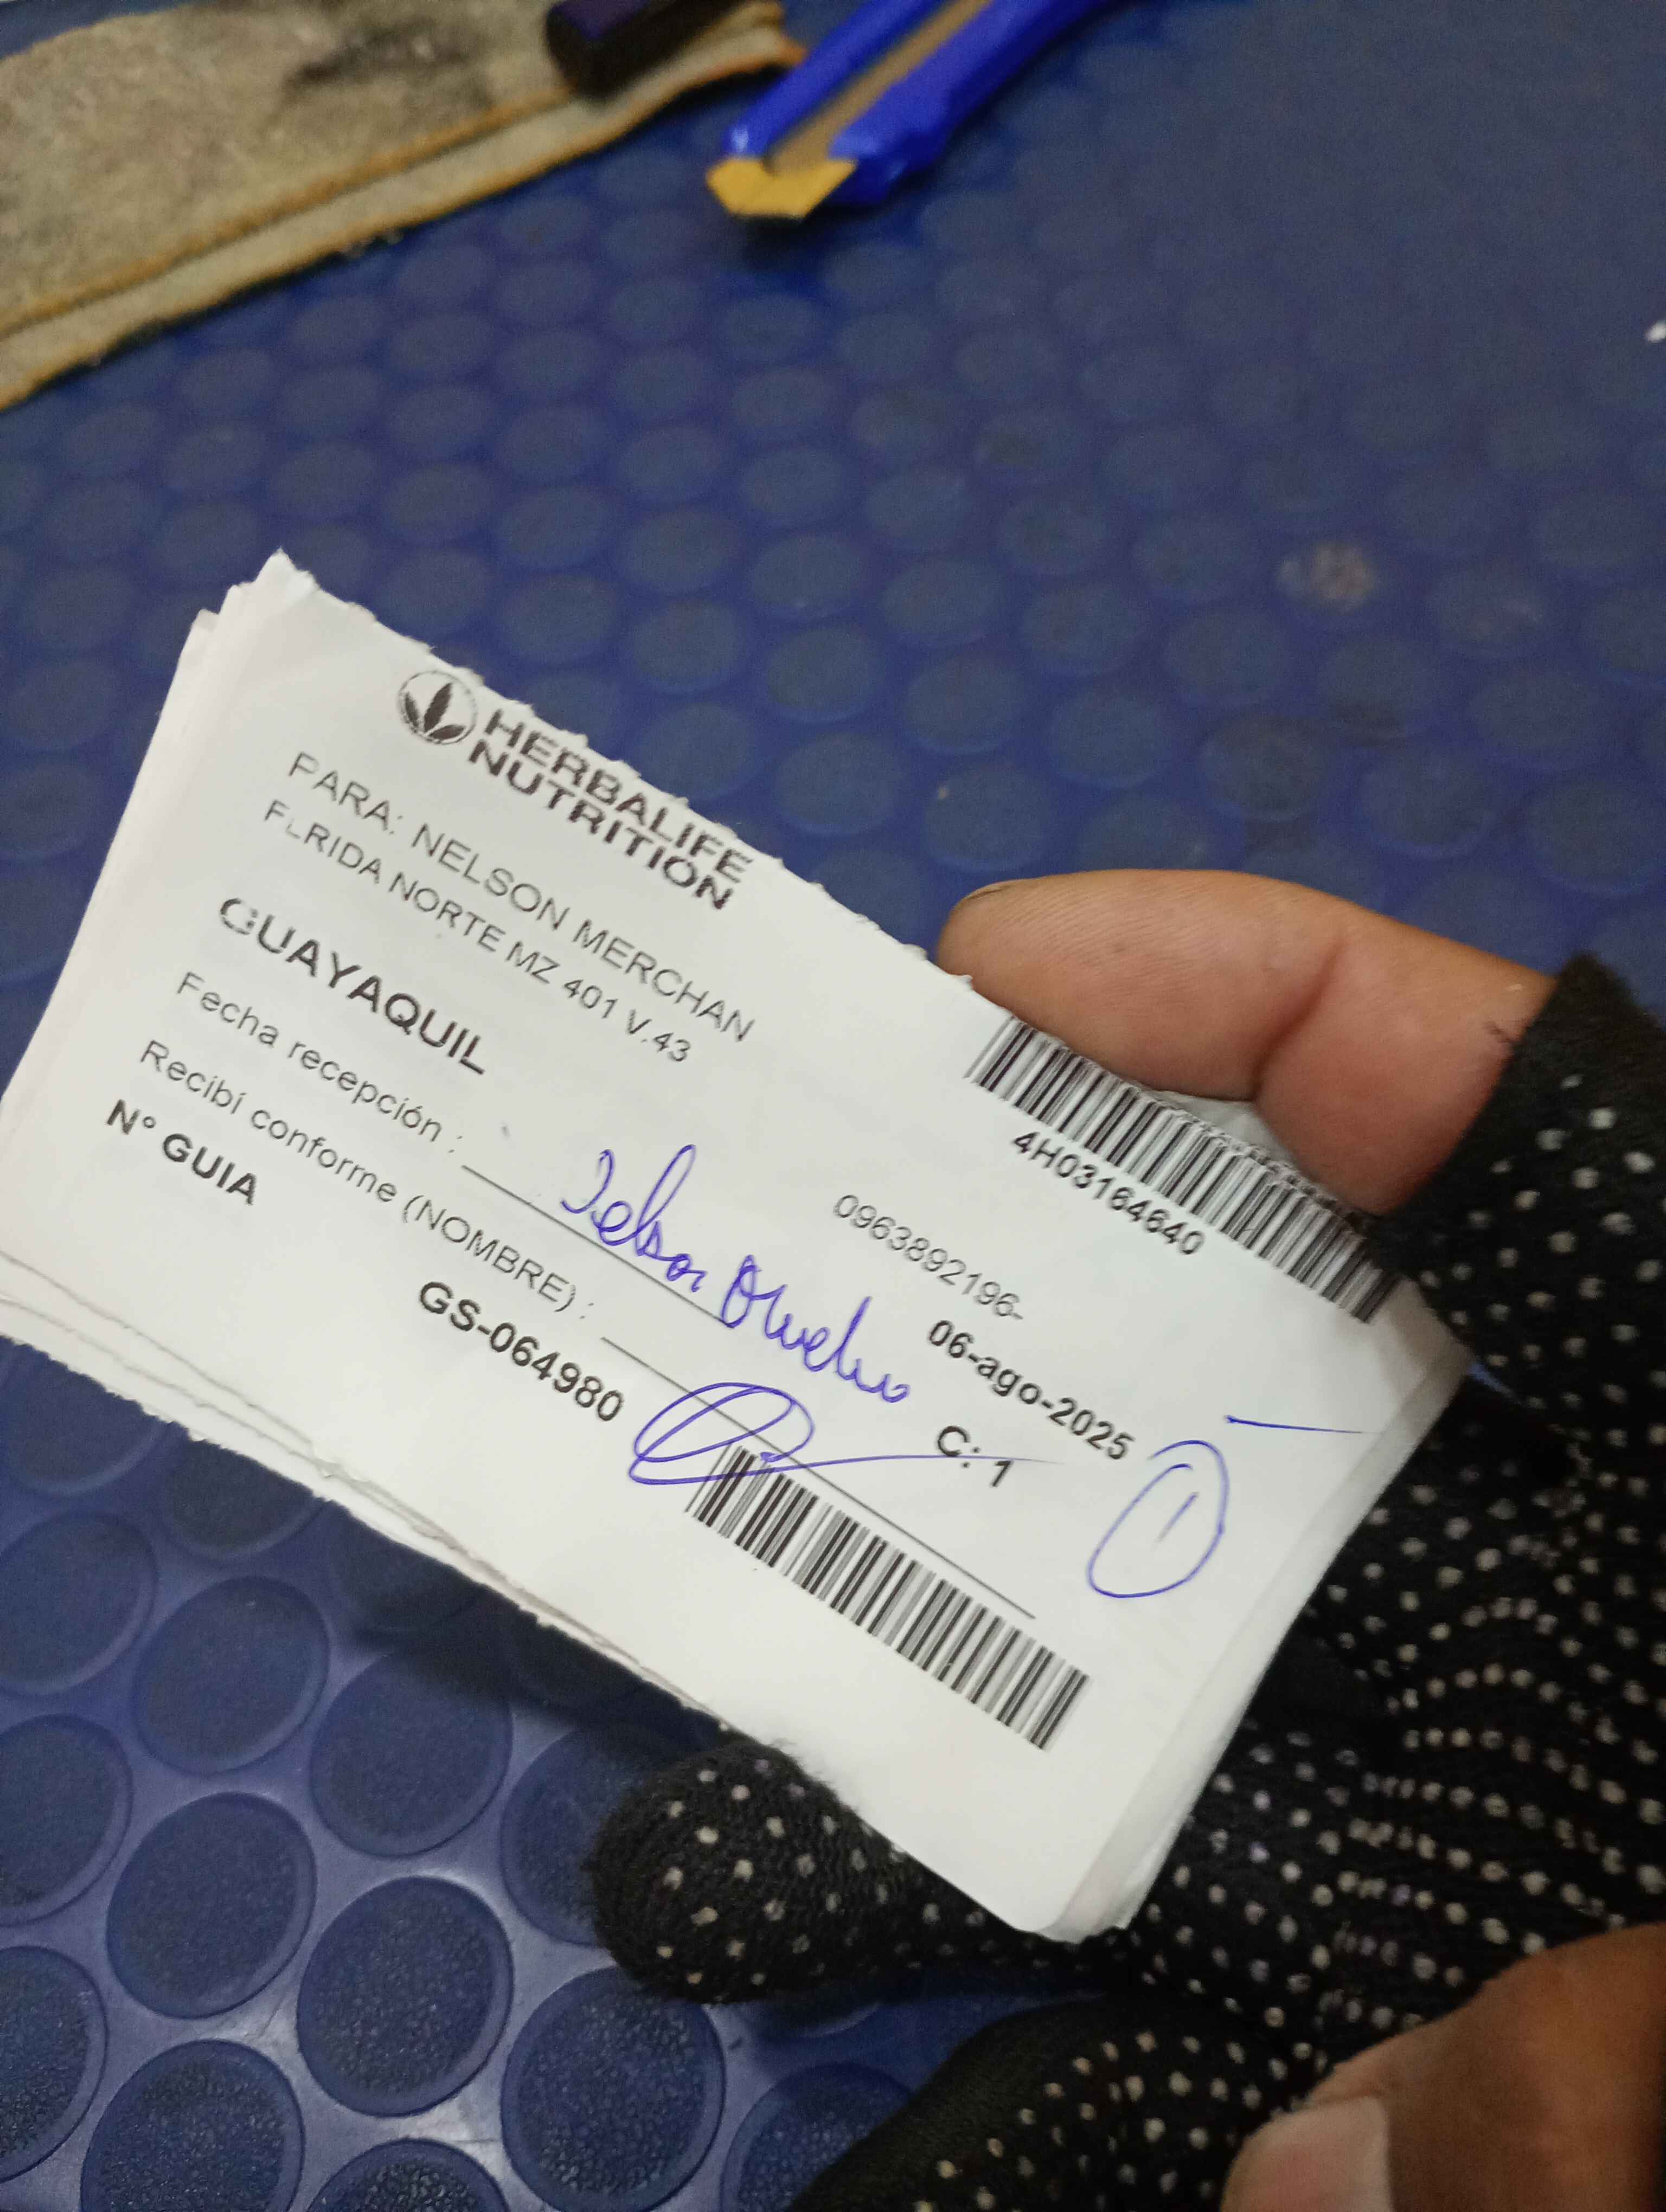 HERBALIFE
NUTRITION
4H03164640
PARA: NELSON MERCHAN
FLRIDA NORTE MZ 401 V.43
0963892196-
GUAYAQUIL
06-ago-2025
Fecha recepción :
Recibí conforme (NOMBRE) :
C: 1
1
N° GUIA
GS-064980